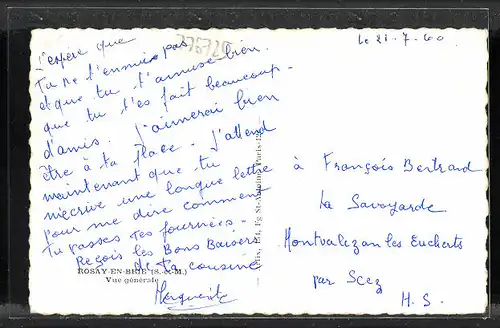 J'espère que
Tu ne t'ennuie pas
et que tu t'amuse bien.
que tu t'es fait beaucoup -
d'amis. J'aimerai bien
être à ta place. J'attend
maintenant que tu
m'écrive une longue lettre
pour me dire comment
Tu passes tes journées -
Reçois les Bons Baisers
de ta cousine
Marguerite
ROSAY-EN-BRIE (S.-&-M.)
Vue générale
276720
Le 21-7-60
à François Bertrand
La Savoyarde
Montvalezan les Eucherts
par Scez
H. S.